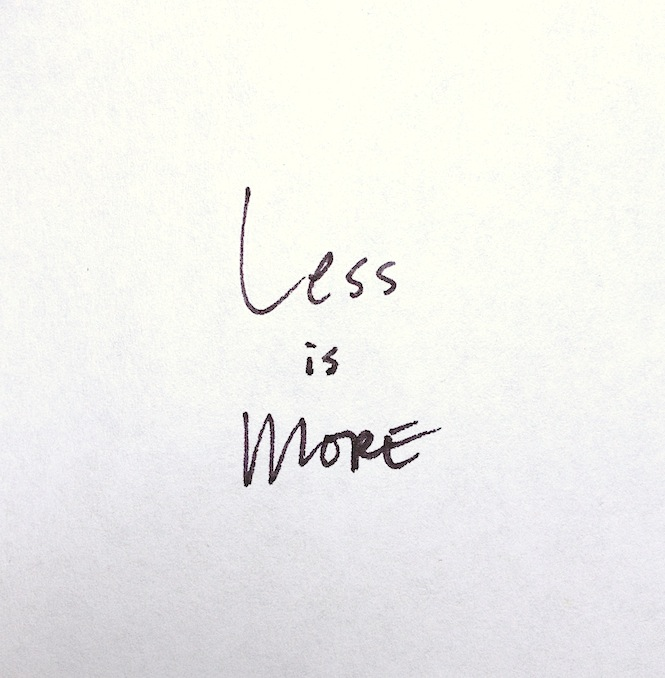 Less
is
MORE